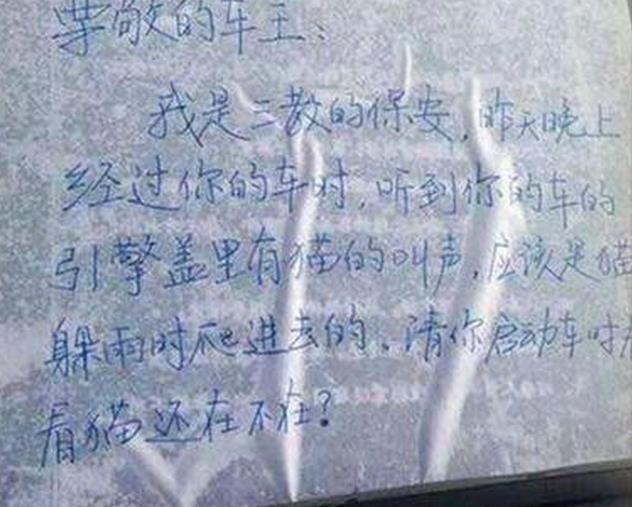 尊敬的车主：
我是三教的保安，昨天晚上
经过你的车时，听到你的车的
引擎盖里有猫的叫声，应该是猫
躲雨时爬进去的，请你启动车时
看猫还在不在？